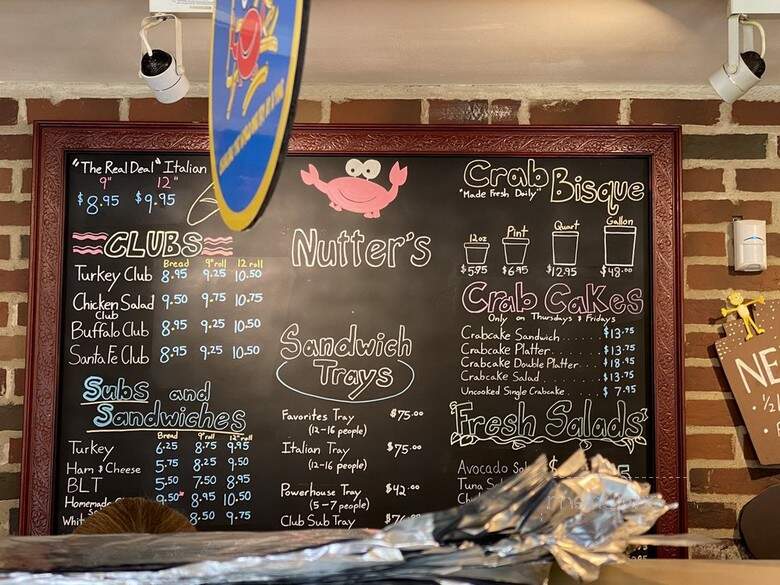 "The Real Deal" Italian
9" 12"
$8.95 $9.95
CLUBS
Bread 9"roll 12"roll
Turkey Club 8.95 9.25 10.50
Chicken Salad Club 9.50 9.75 10.75
Buffalo Club 8.95 9.25 10.50
Santa Fe Club 8.95 9.25 10.50
Subs and
Sandwiches
Bread 9"roll 12"roll
Turkey 6.25 8.75 9.95
Ham & Cheese 5.75 8.25 9.50
BLT 5.50 7.50 8.95
Homemade 9.50 8.95 10.50
8.50 9.75
Nutter's
Sandwich
Trays
Favorites Tray $75.00
(12-16 people)
Italian Tray $75.00
(12-16 people)
Powerhouse Tray $42.00
(5-7 people)
Club Sub Tray
Crab Bisque
"Made Fresh Daily"
12oz Pint Quart Gallon
$5.95 $6.95 $12.95 $48.00
Crab Cakes
Only on Thursdays & Fridays
Crabcake Sandwich.....$13.75
Crabcake Platter.....$13.75
Crabcake Double Platter..$18.95
Crabcake Salad.....$13.75
Uncooked Single Crabcake...$7.95
Fresh Salads
Avocado
Tuna
NE